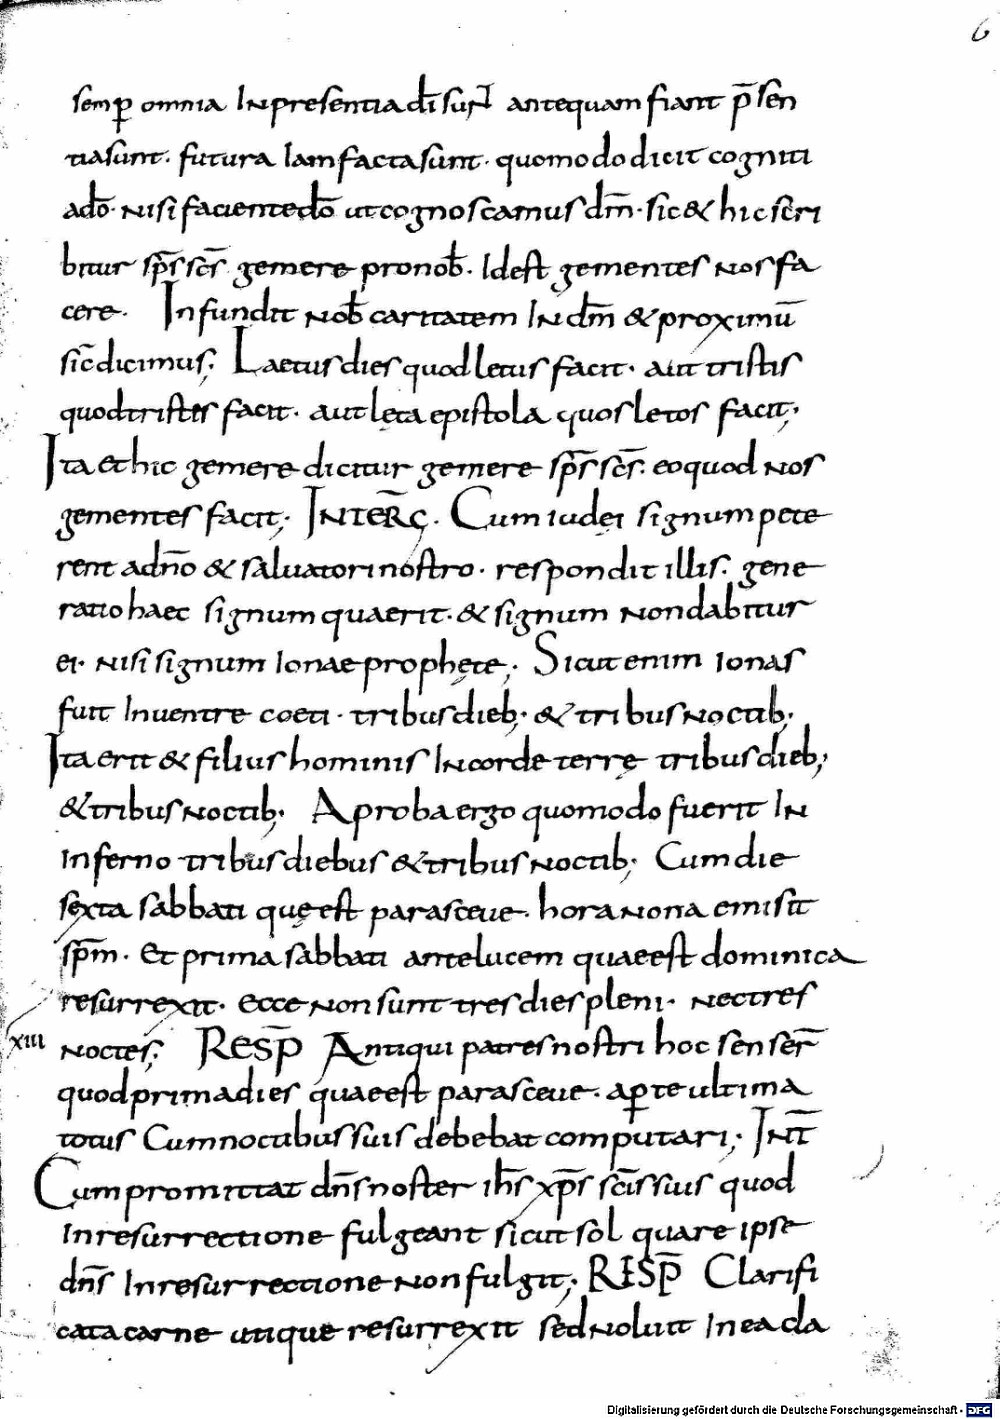 6
semꝑ omnia In presentia dī sunt antequam fiant p̄sen
tia sunt · futura Iam facta sunt · quomodo dicit cogniti
a dō · nisi faciente dō ut cognoscamus dm̄ · sic & hic scri
bitur sp̄s sc̄s gemere pro nob̄ · Idest gementes nos fa
cere · Infundit nob̄ caritatem In dm̄ & proximū
sic̄ dicimus; Laetus dies quod letus facit · aut tristis
quod tristes facit · aut lęta epistola quos letos facit;
Ita et hic gemere dicitur gemere sp̄s sc̄s · eo quod nos
gementes facit; INTER̄ꞔ · Cum iudęi signum pete
rent a dn̄o & saluatori nostro · respondit illis · gene
ratio haec signum quaerit · & signum non dabitur
ei · nisi signum Ionae prophętę; Sicut enim Ionas
fuit In uentre coeti · tribus dieb; & tribus noctib;
Ita erit & filius hominis In corde terrę tribus dieb;
& tribus noctib; A proba ergo quomodo fuerit In
Inferno tribus diebus & tribus noctib; Cum die
sexta sabbati quę est parasceue · hora nona emisit
sp̄m · Et prima sabbati ante lucem quae est dominica
resurrexit · ecce non sunt tres dies pleni · nec tres
xiii noctes; RESP̄ Antiqui patres nostri hoc senser̄
quod prima dies quae est parasceue · a ꝑte ultima
totus Cum noctibus suis debebat computari; INT̄
Cum promittat dn̄s noster ih̄s xp̄s sc̄is suis quod
In resurrectione fulgeant sicut sol quare ipse
dn̄s In resurrectione non fulgit; RESP̄ Clarifi
cata carne utique resurrexit sed noluit In ea cla
Digitalisierung gefördert durch die Deutsche Forschungsgemeinschaft - DFG